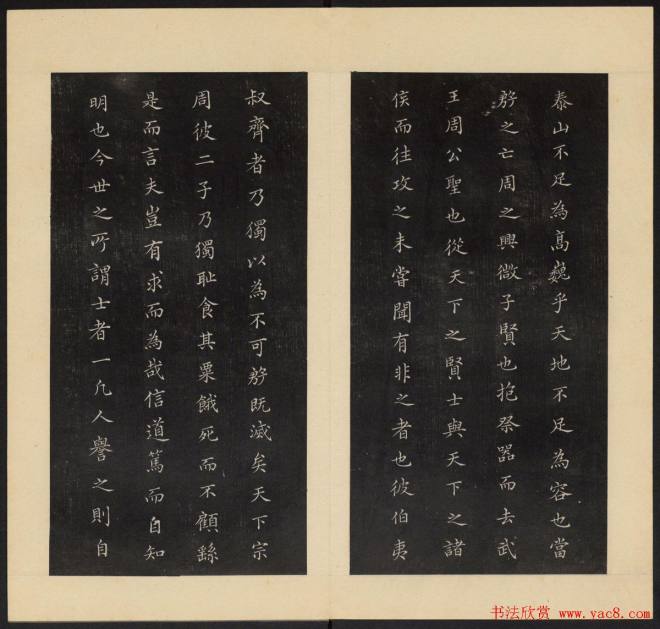 泰山不足為高巍乎天地不足為容也當
殷之亡周之興微子賢也抱祭器而去武
王周公聖也從天下之賢士與天下之諸
侯而往攻之未嘗聞有非之者也彼伯夷
叔齊者乃獨以為不可殷既滅矣天下宗
周彼二子乃獨耻食其粟餓死而不顧繇
是而言夫豈有求而為哉信道篤而自知
明也今世之所謂士者一凡人譽之則自
书法欣赏 www.yac8.com